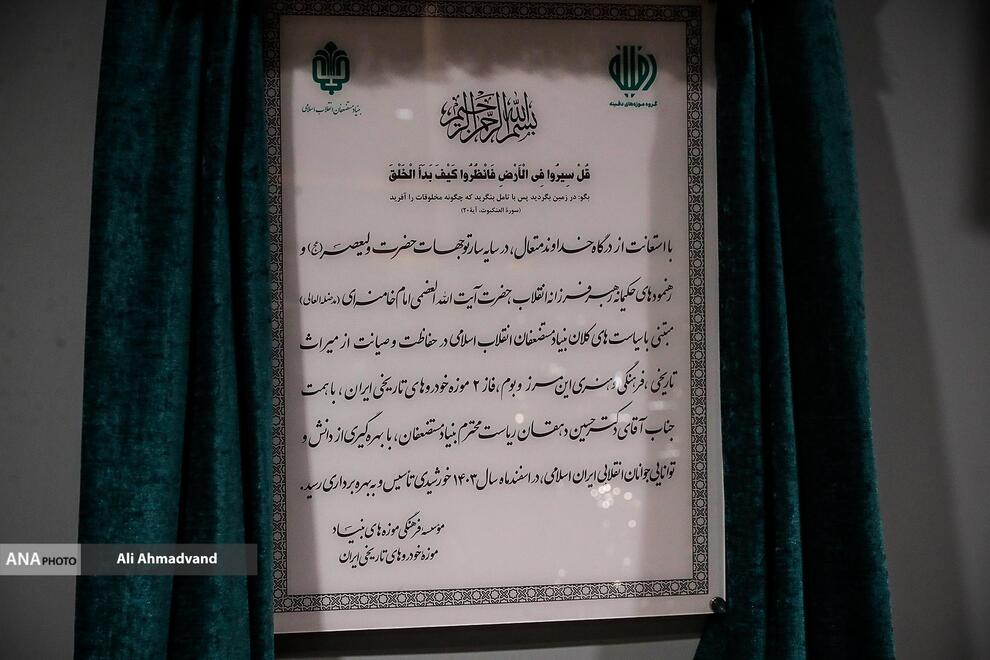 بنیاد مستضعفان انقلاب اسلامی
گروه موزه‌های دفینه
بسم الله الرحمن الرحیم
قُلْ سِیرُوا فِی الْأَرْضِ فَانْظُرُوا کَیْفَ بَدَأَ الْخَلْقَ
بگو: در زمین بگردید پس با تامل بنگرید که چگونه مخلوقات را آفرید
(سورة العنکبوت، آیة ۲۰)
با استعانت از درگاه خداوند متعال، در سایه سار توجهات حضرت ولیعصر (عج) و
رهنمودهای حکیمانه رهبر فرزانه انقلاب، حضرت آیت الله العضمی امام خامنه‌ای (مدظله العالی)
مبتنی با سیاست های کلان بنیاد مستضعفان انقلاب اسلامی در حفاظت و صیانت از میراث
تاریخی، فرهنگی و هنری این مرز و بوم، فاز ۲ موزه خودروهای تاریخی ایران، با همت
جناب آقای دکتر حسین دهقان ریاست محترم بنیاد مستضعفان، با بهره گیری از دانش و
توانایی جوانان انقلابی ایران اسلامی، در اسفندماه سال ۱۴۰۳ خورشیدی تأسیس و به بهره برداری رسید.
مؤسسه فرهنگی موزه های بنیاد
موزه خودروهای تاریخی ایران
ANA PHOTO Ali Ahmadvand